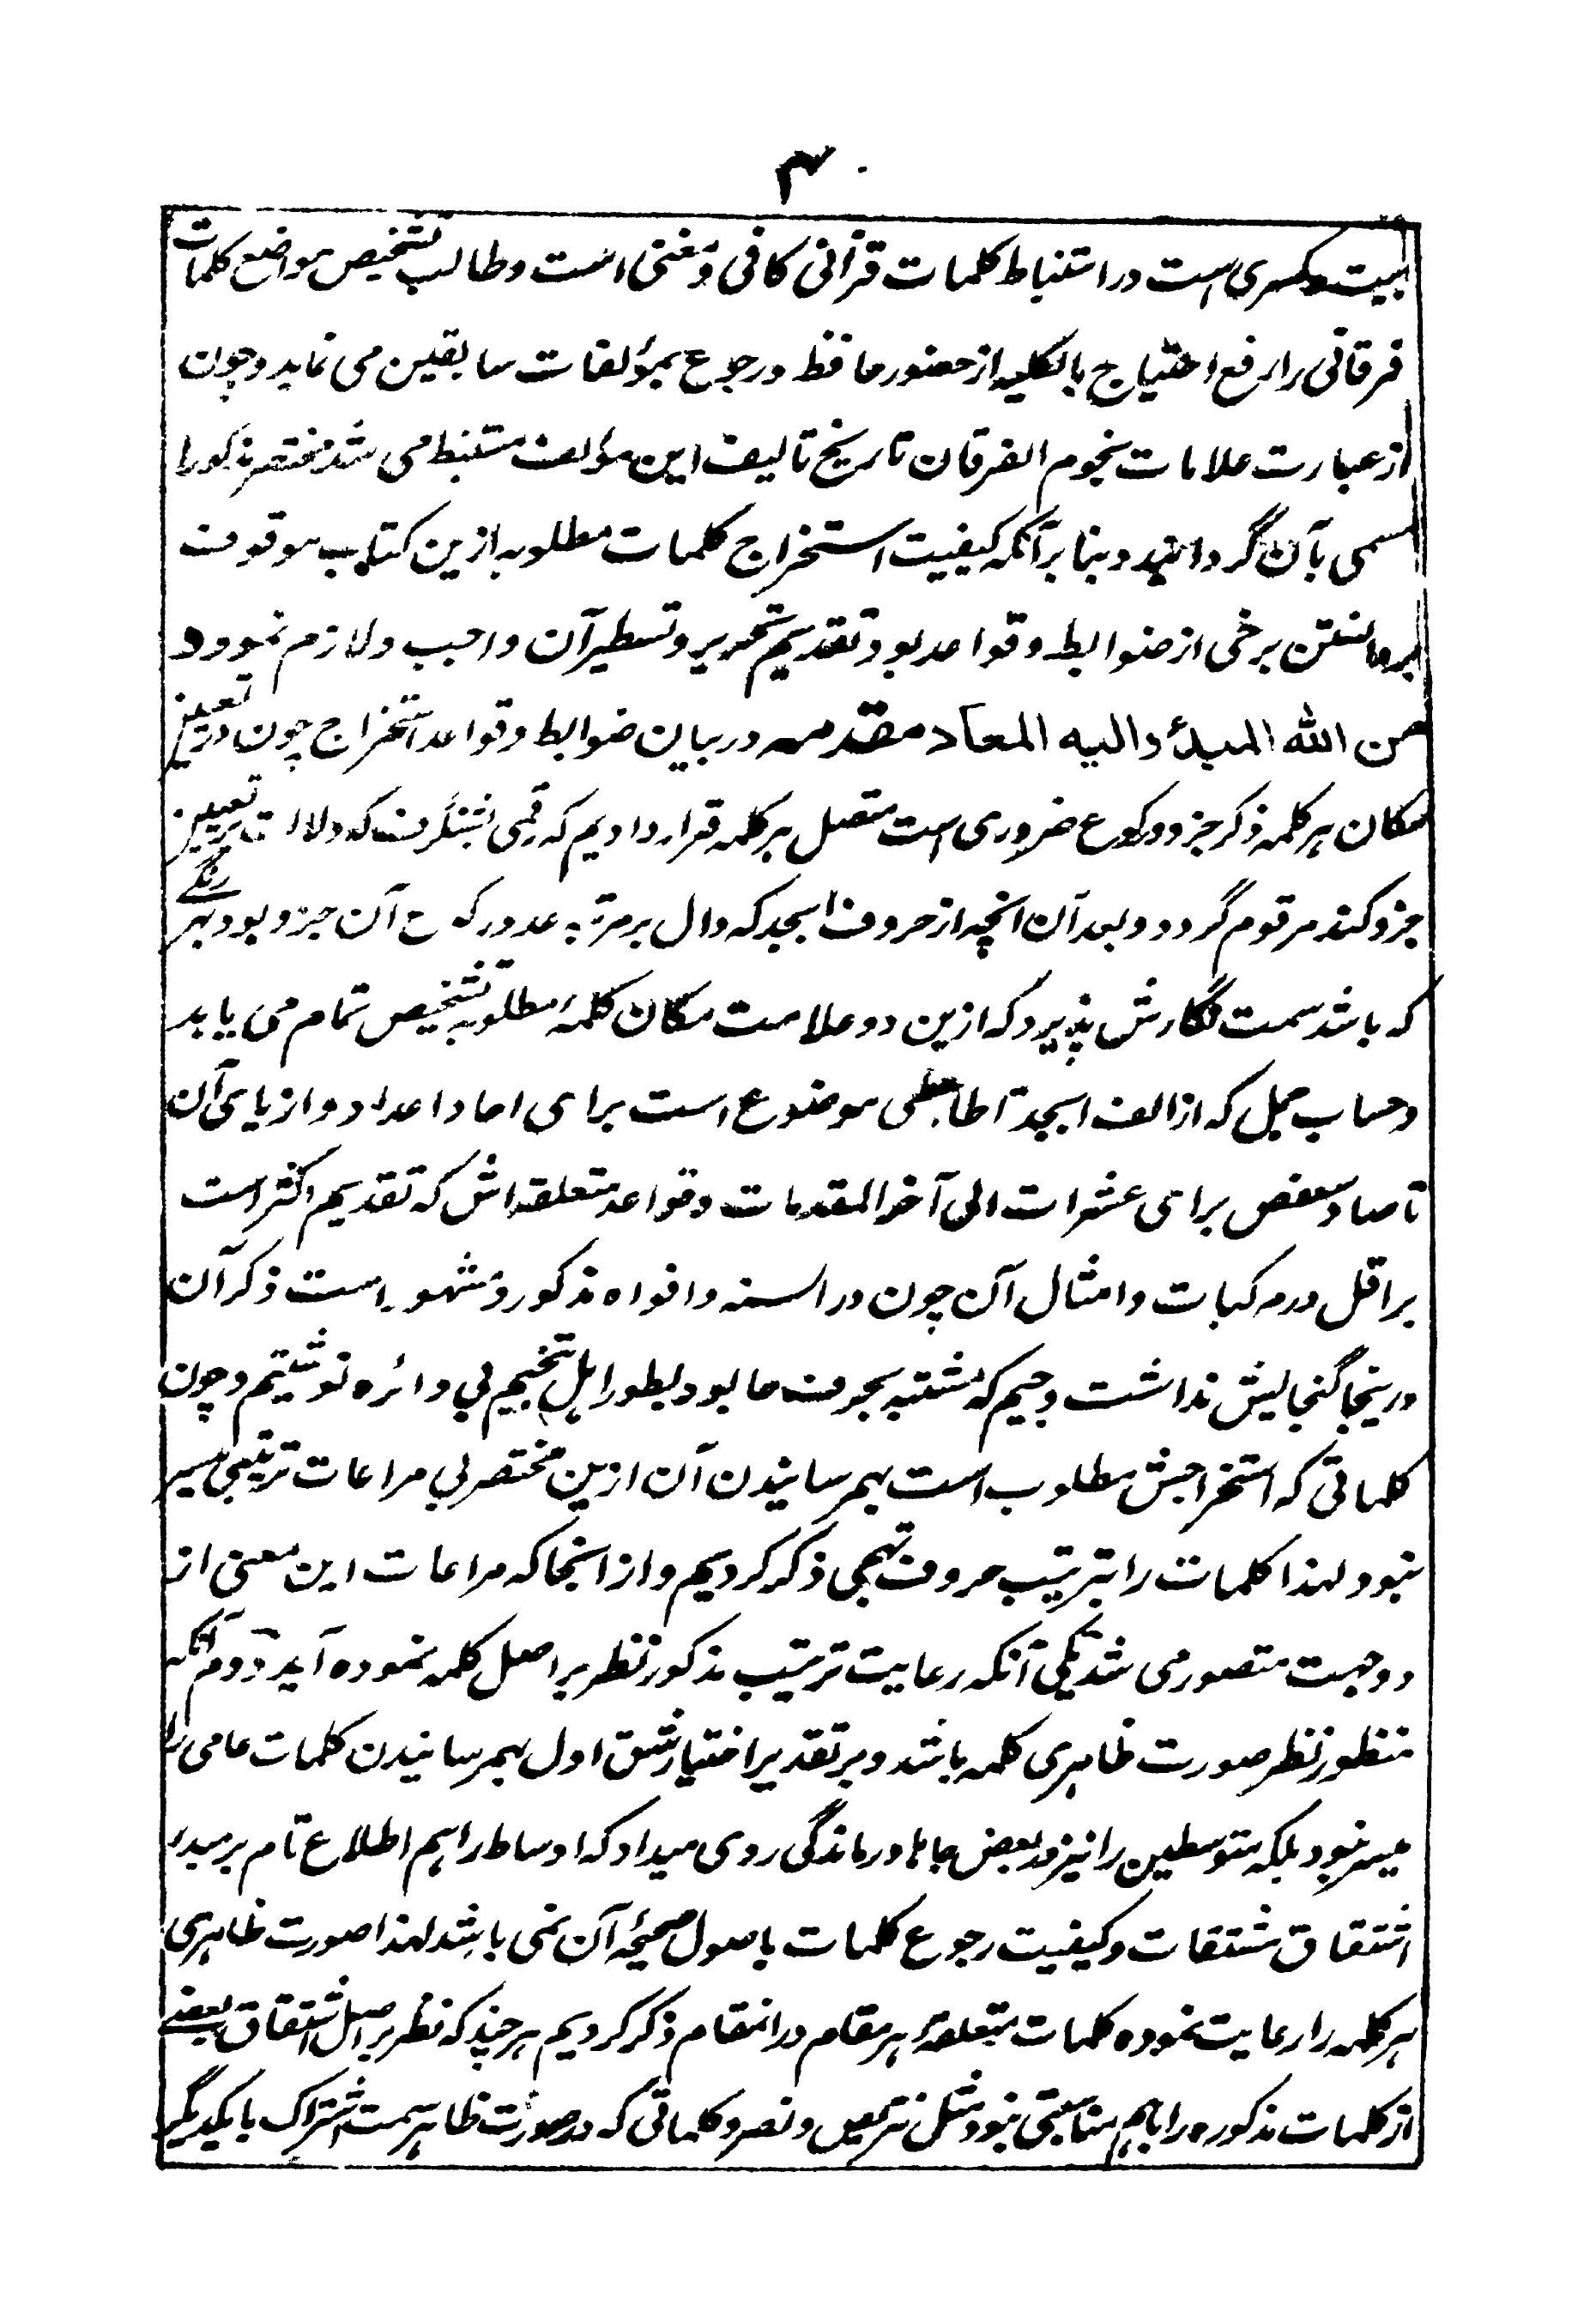 ۴
بیست و کسری است در استنباط کلمات قرآنی کافی و مغنی است و طالب تشخیص مواضع کلمات
فرقانی را رفع احتیاج بالکلیه از حضور حافظ و رجوع بمؤلفات سابقین می نماید و چون
از عبارت علامات نجوم الفرقان تاریخ تالیف این مؤلف مستنبط می شد مختصر مذکور را
مسمی بآن گردانید و بنا بر آنکه کیفیت استخراج کلمات مطلوبه ازین کتاب موقوف
بر دانستن برخی از ضوابط و قواعد بود تقدیم تحریر و تسطیر آن واجب و لازم نمود و
من الله المبدأ و الیه المعاد مقدمه در بیان ضوابط و قواعد استخراج چون در تعیین
مکان هر کلمه ذکر جزو و رکوع ضروری است متصل هر کلمه قرار دادیم که رقمی بشنگرف که دلالت بر تعیین
جزو کند مرقوم گردد و بعد آن انچه از حروف ابجد که دال بر مرتبه عدد رکوع آن جزو بود بهر رنگے
که باشد سمت نگارش پذیرد که ازین دو علامت مکان کلمهٔ مطلوبه تشخیص تمام می یابد
و حساب جمل که از الف ابجد تا طا حطی موضوع است برای احاد اعداد و از یای آن
تا صاد سعفص برای عشرات الی آخر المقدمات و قواعد متعلقه اش که تقدیم اکثر است
بر اقل در مرکبات و امثال آن چون در السنه و افواه مذکور و مشهور است ذکر آن
درینجا گنجایش نداشت و جیم که مشتبه بحرف حا بود بطور اهل تنجیم بی دائره نوشتیم و چون
کلماتی که استخراجش مطلوب است بهم رسانیدن آن ازین مختصر بی مراعات ترتیبی میسر
نبود لهذا کلمات را بترتیب حروف تهجی ذکر کردیم و از انجا که مراعات این معنی از
دو جهت متصور می شد یکی آنکه رعایت ترتیب مذکور نظر بر اصل کلمه نموده آید دوم آنکه
منظور نظر صورت ظاهری کلمه باشد و بر تقدیر اختیار شق اول بهم رسانیدن کلمات عامی را
میسر نبود بلکه متوسطین را نیز در بعض جاها درماندگی روی میداد که اوساط را هم اطلاع تام بر مبدء
اشتقاق مشتقات و کیفیت رجوع کلمات باصول صحیحهٔ آن نمی باشد لهذا صورت ظاهری
هر کلمه را رعایت نموده کلمات متعلقهٔ هر مقام در انمقام ذکر کردیم هر چند که نظر بر اصل اشتقاق بعضے
از کلمات مذکوره را باهم مناسبتی نبود مثل نتربص و نصر و کلماتی که در صورت ظاهر سمت اشتراک با یکدیگر